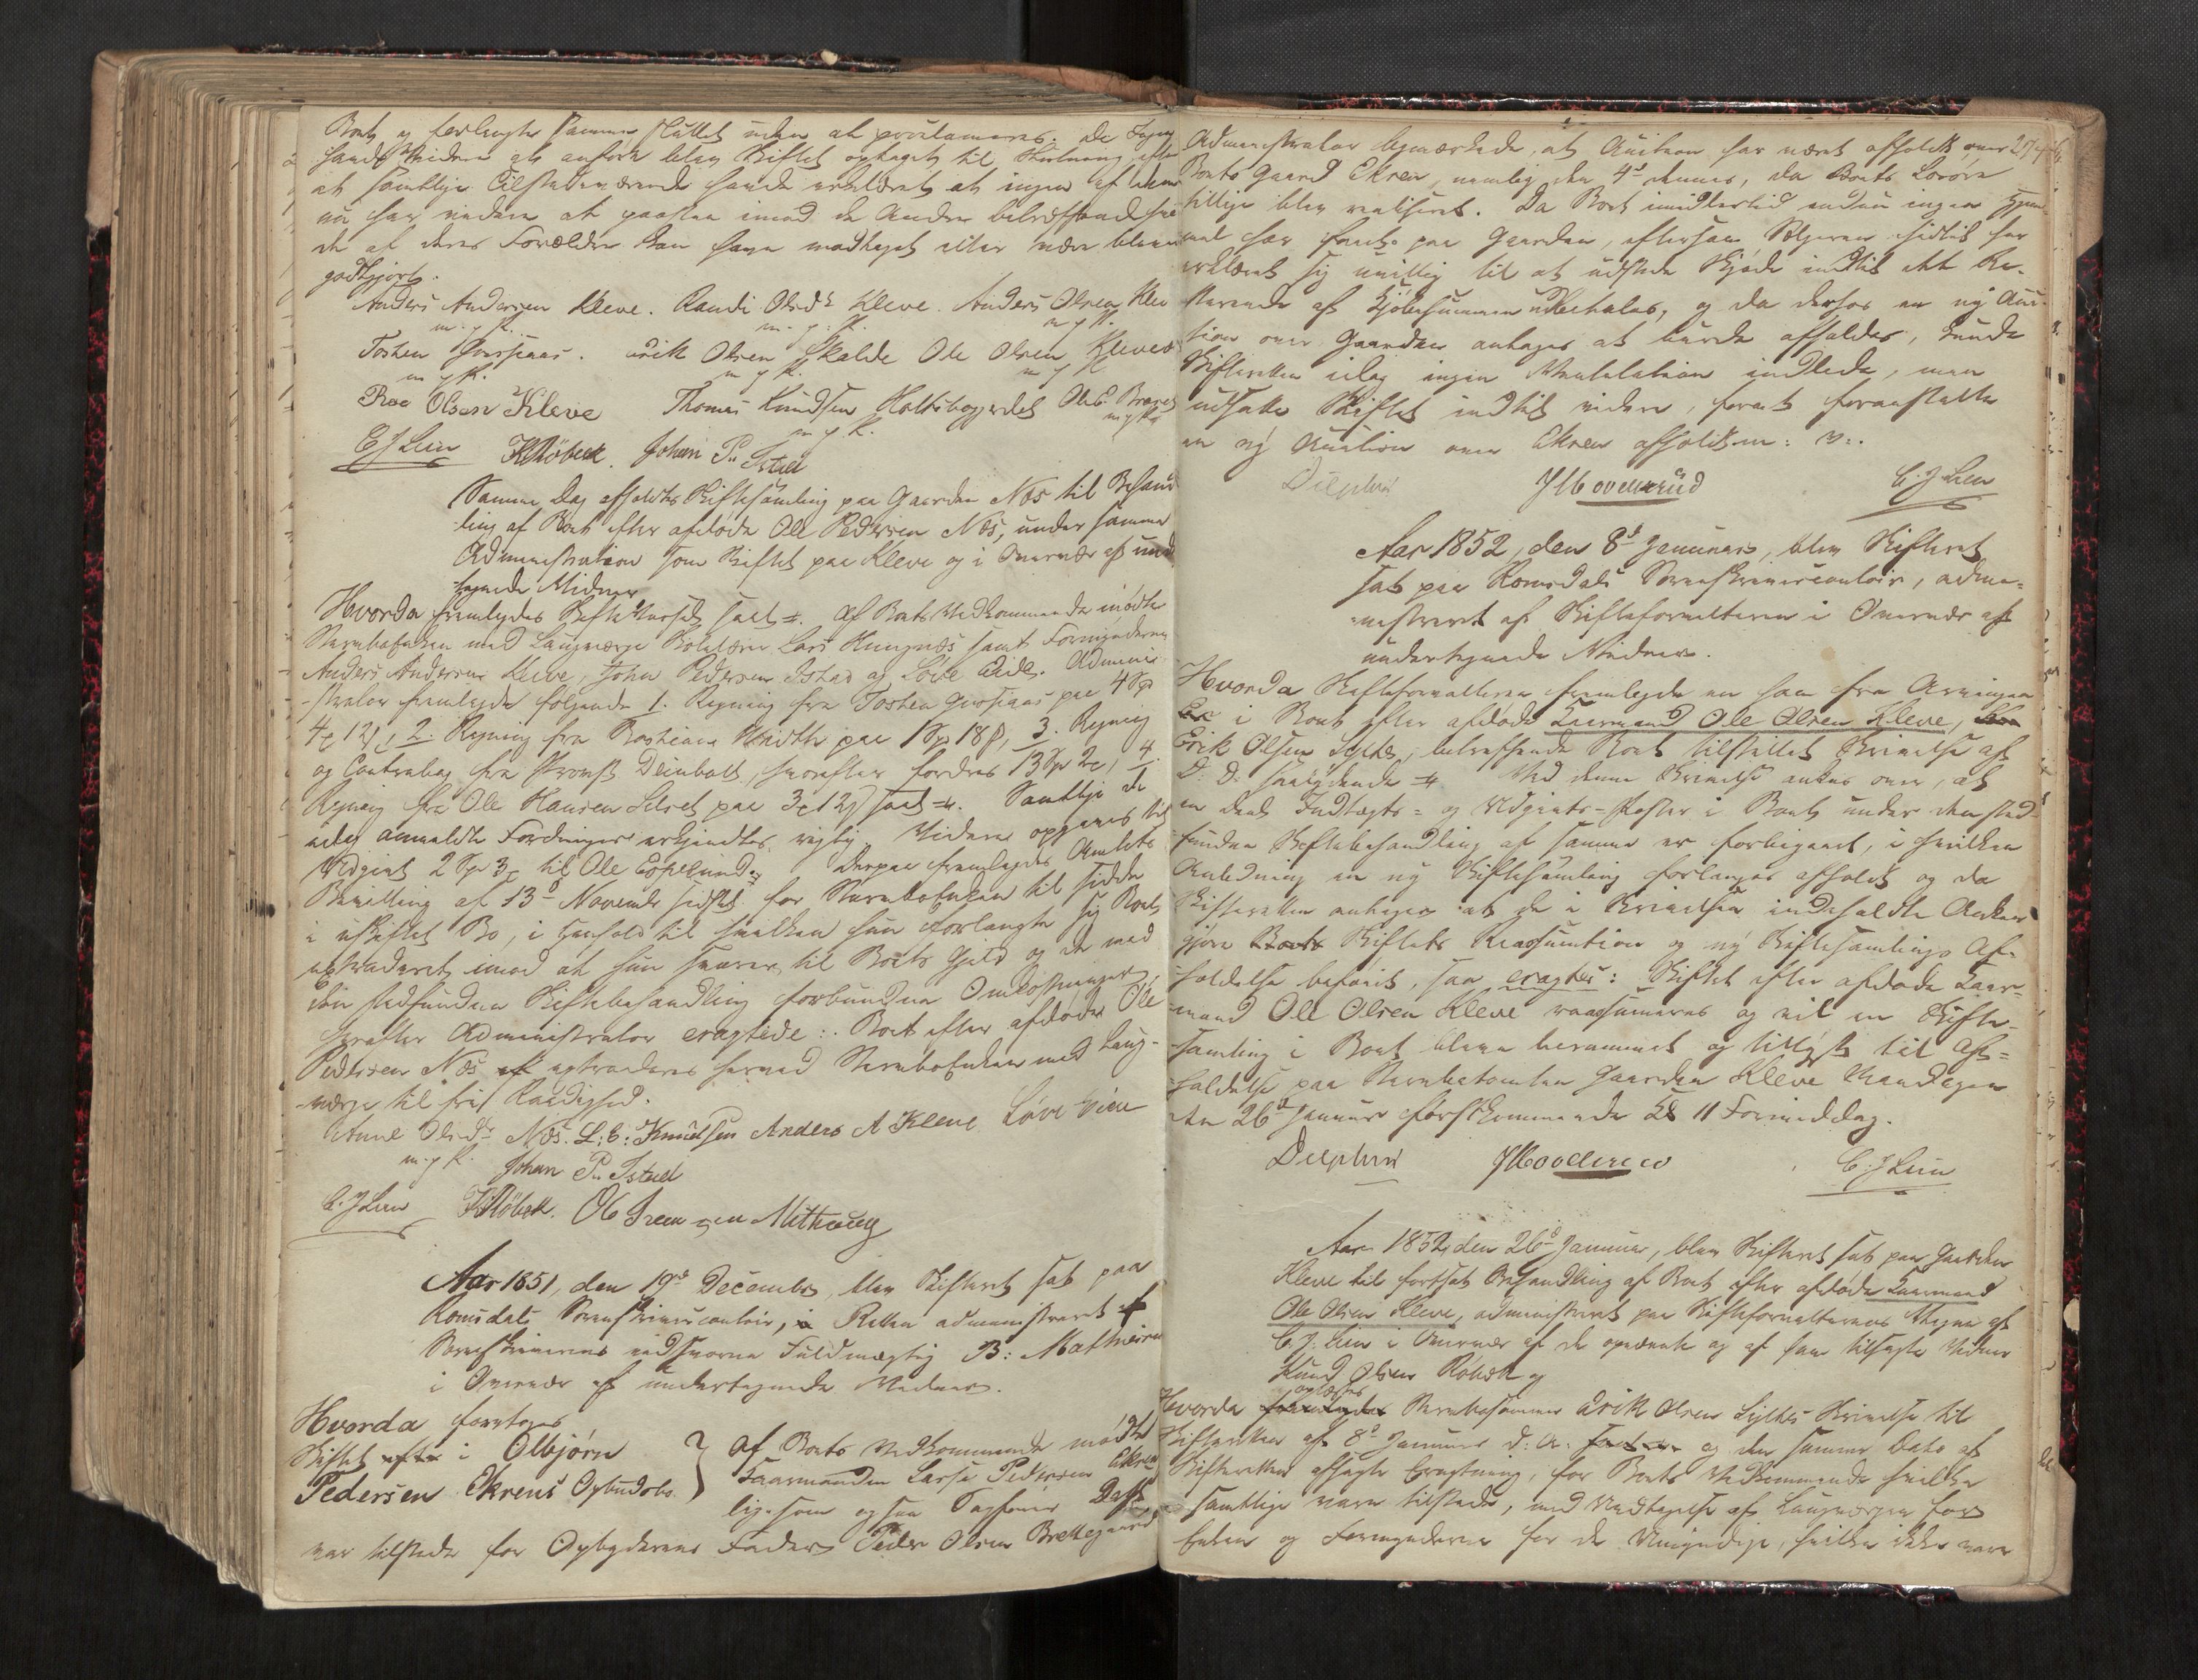 Boets og forlangte samme sluttet uden at proclameres. De Ingen
havde videre at anføre blev Skiftet optaget til Slutning efter
at samtlige Tilstedeværende havde erklæret at ingen af dem
nu har videre at paastaa imod de Andre betræffende hva
de af deres Forældre kan have modtaget eller være bleven
godtgjort.
Anders Andersen Kleve. Randi Olsdr Kleve. Anders Olsen Klev
m. p. P. m. p. P. m. p. P.
Tosten . Erik Olsen Skalde Ole Olsen Kleve
m p P. m p P. m p P
Roe Olsen Kleve Thomas Knudsen Holtsbogerdet Ole
m p P. m p P
C J Lien K Röbek. Johan P. Istad
Samme Dag afholdtes Skiftesamling paa Gaarden Næs til Behand
ling af Boet efter afdøde Ole Pedersen Næs, under samme
Administration som Skiftet paa Kleve og i Overvær af und
tegnede Vidner
Hvorda fremlagdes saal. Af Boets Vedkommende mødte
Stervboenken med Laugværge Lars samt Formynderne
Anders Andersen Kleve, John Pedersen Istad og Løve Eide. Admini
strator fremlagde følgende 1. Regning fra Tosten paa 4 Spd
4 12, 2. Regning fra paa 1 Spd 18 ß, 3. Regning
og Contrabog fra Provst Deinboll, hvorefter fordres 13 Spd 2, 4.
Regning fra Ole Hansen paa 3 12 saal. Samtlige de
anmeldte Fordringer erkjendtes rigtig. Videre opgaves til
Udgivt 2 Spd 3 til Ole . Derpaa fremlagdes Amtets
Bevilling af 13d November sidstl. for Stervboenken til sidde
i uskiftet Bo, i Henhold til hvilken hun forlangte sig Boet
extraderet imod at hun svarer til Boets Gjeld og de med
den stedfundne Skiftebehandling forbundne Omkostninger,
hvorefter Administrator eragtede: Boet efter afdøde Ole
Pedersen Næs extraderes hermed Stervboenken med Laug-
værge til fri Raadighed.
Anne Olsdr Næs. L: C: Knudsen Anders A Kleve Løve Eide
m. p P. Johan P. Istad
C. J Lien K Röbek.
Aar 1851, den 19de December, blev Skifteret sat paa
Romsdals Sorenskrivercontoir, Retten administreret
Sorenskriverens edsvorne Fuldmægtig B: Mathiesen
i Overvær af undertegnede Vidner.
Hvorda foretoges
Skiftet i Olbjørn
Pedersen Ekrens Opbudsbo. } Af Boets Vedkommende mødte
Laarmanden Lasse Pedersen Ekren
ligesom ogsaa Sagfører
var tilstede for Opbyderens Fader Peder Olsen Brekkegaard
Administrator bemærkede, at Auction har været afholdt over
Boets Gaard Ekren, nemlig den 4de dennes, da Boets Løsøre
tillige blev realiseret. Da Boet imidlertid endnu ingen Hjem
mel har faaet paa Gaarden, eftersom Sælgeren hidtil har
erklæret sig uvillig til at udstede Skjøde indtil det Re-
sterende af Kjøbesummen udbetales, og da derfor en ny Auc
tion over Gaarden antages at burde afholdes, kunde
Skifteretten idag ingen indlede, men
udsatte Skiftet indtil videre, forat foranstalte
en ny Auction over Ekren afholdt m: v:.
Delphin J Hovelsrud C. J Lien
Aar 1852, den 8de Januari, blev Skifteret
sat paa Romsdals Sorenskrivercontoir, admi-
nistreret af Skifteforvalteren i Overvær af
undertegnede Vidner.
Hvorda Skifteforvalteren fremlagde en ham fra Arvingen
i Boet efter afdøde Laarmand Ole Olsen Kleve,
Erik Olsen Sylte, betræffende Boet tilstillet Skrivelse af
D. D. saalydende. Ved denne Skrivelse ankes over, at
en deel Indtægts- og Udgivts-Poster i Boet under den sted-
fundne Skiftebehandling af samme er forbigaaet, i hvilken
Anledning en ny Skiftesamling forlanges afholdt og da
Skifteretten antager at de i Skrivelsen indeholdte Anker
gjøre Skiftets Reassumtion og ny Skiftesamlings Af-
holdelse beføiet, saa eragtes: Skiftet efter afdøde Laar-
mand Ole Olsen Kleve reassumeres og vil en Skifte-
samling i Boet blive berammet og tillyst til Af-
holdelse paa Stervbotomten Gaarden Kleve Mandagen
den 26de Januar førstkommende Kl 11 Formiddag.
Delphin J Hovelsrud C. J Lien
Aar 1852, den 26de Januar, blev Skifteret sat paa Gaarden
Kleve til fortsat Behandling af Boet efter afdøde Laarmand
Ole Olsen Kleve, administreret paa Skifteforvalterens Vegne af
C. J. Lien i Overvær af de opnævnte og af ham tilsagte Vidner
Knud Olsen Röbek og
oplæstes
Hvorda Stervbosønnen Erik Olsen Syltes Skrivelse til
Skifteretten af 8de Januar d: A: og den samme Dato af
Skifteretten afsagte Eragtning, for Boets Vedkommende hvilke
samtlige vare tilstede, med Undtagelse af Laugværgen for
Enken og Formynderne for de Umyndige, hvilke ikke vare